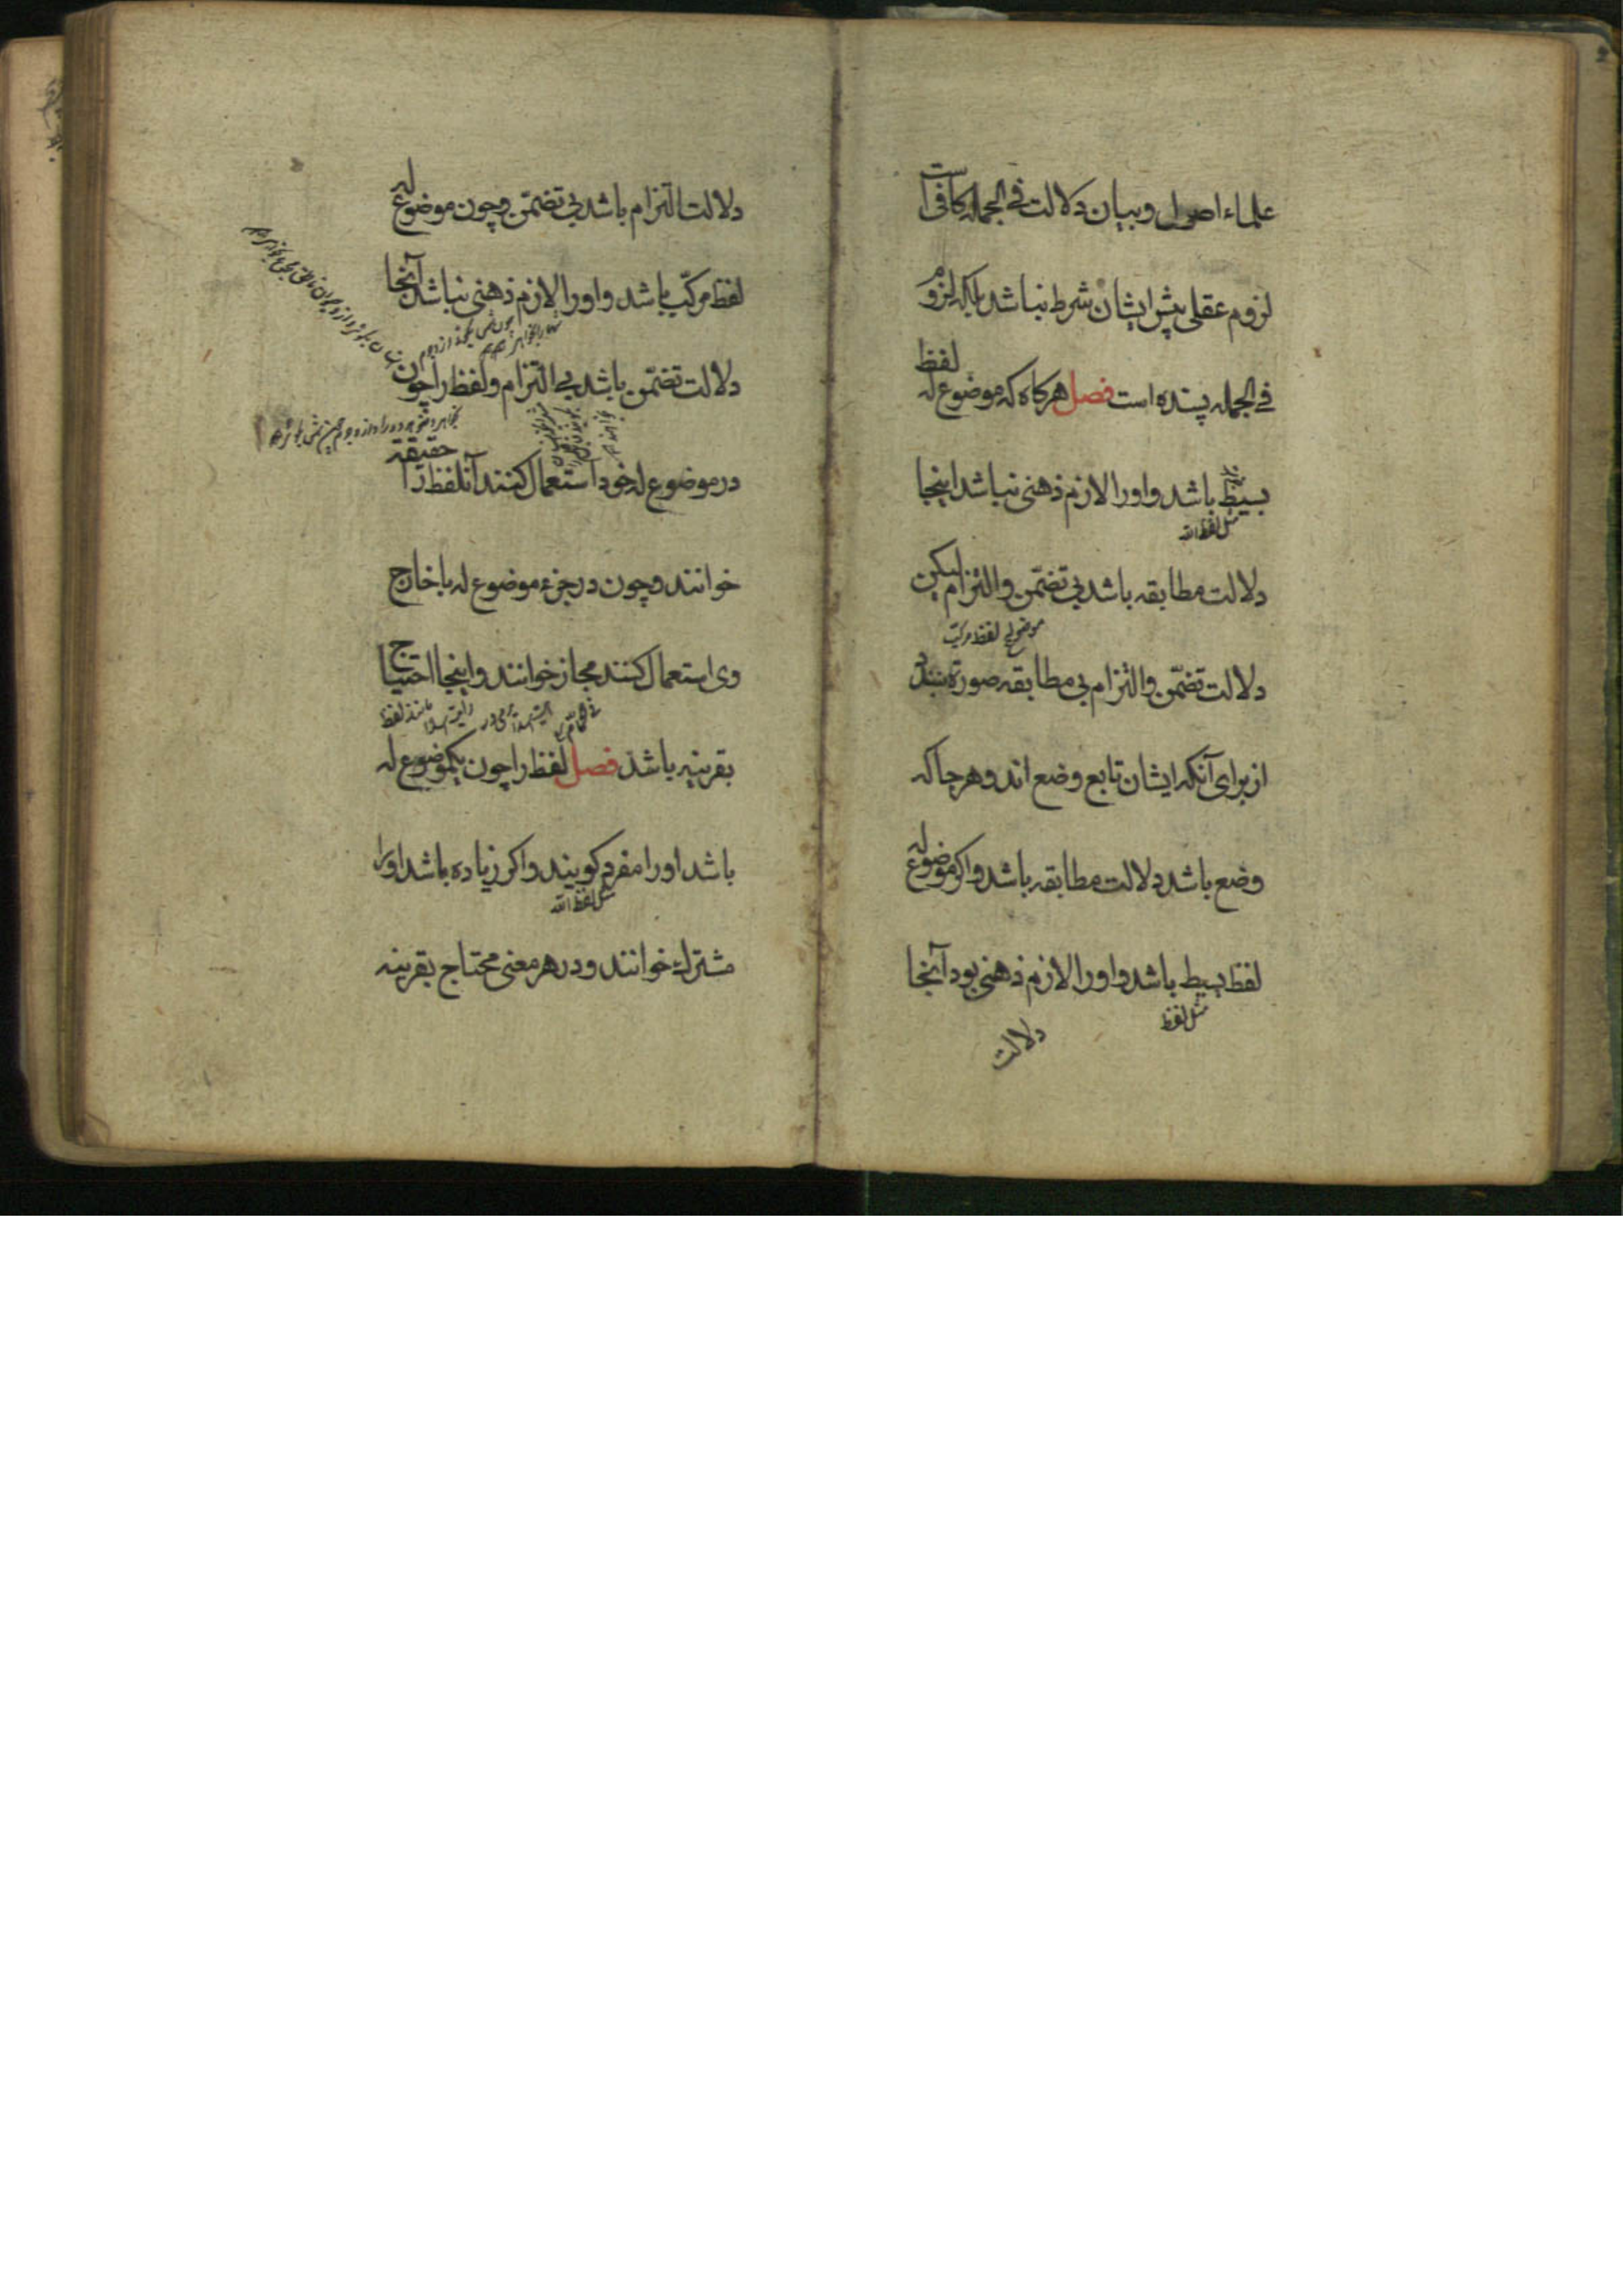 علماء اصول و بیان دلالت فی الجمله کافی است
لزوم عقلی پیش ایشان شرط نباشد بلکه لزوم
فی الجمله پسنده است فصل هرکاه که موضوع له لفظ
بسیط باشد و او را لازم ذهنی نباشد اینجا
مثل لفظ الله
دلالت مطابقه باشد بی تضمّن و التزام لیکن
موضوع لفظ مرکب
دلالت تضمّن و التزام بی مطابقه صورة نبندد
از برای آنکه ایشان تابع وضع اند و هر جا که
وضع باشد دلالت مطابقه باشد و اکر موضوع له
لفظ بسیط باشد و او را لازم ذهنی بود آنجا
مثل لفظ
دلالت
دلالت التزام باشد بی تضمّن و چون موضوع له
لفظ مرکّب باشد و او را لازم ذهنی نباشد آنجا
دلالت تضمّن باشد بی التزام و لفظ را چون
در موضوع له خود استعمال کنند آنلفظ را حقیقة
خوانند و چون در جزء موضوع له یا خارج
وی استعمال کنند مجاز خوانند و اینجا احتیاج
بقرینه باشد فصل لفظ را چون یکموضوع له
باشد او را مفرد کویند و اکر زیاده باشد او را
مثل لفظ الله
مشترك خوانند و در هر معنی محتاج بقرینه